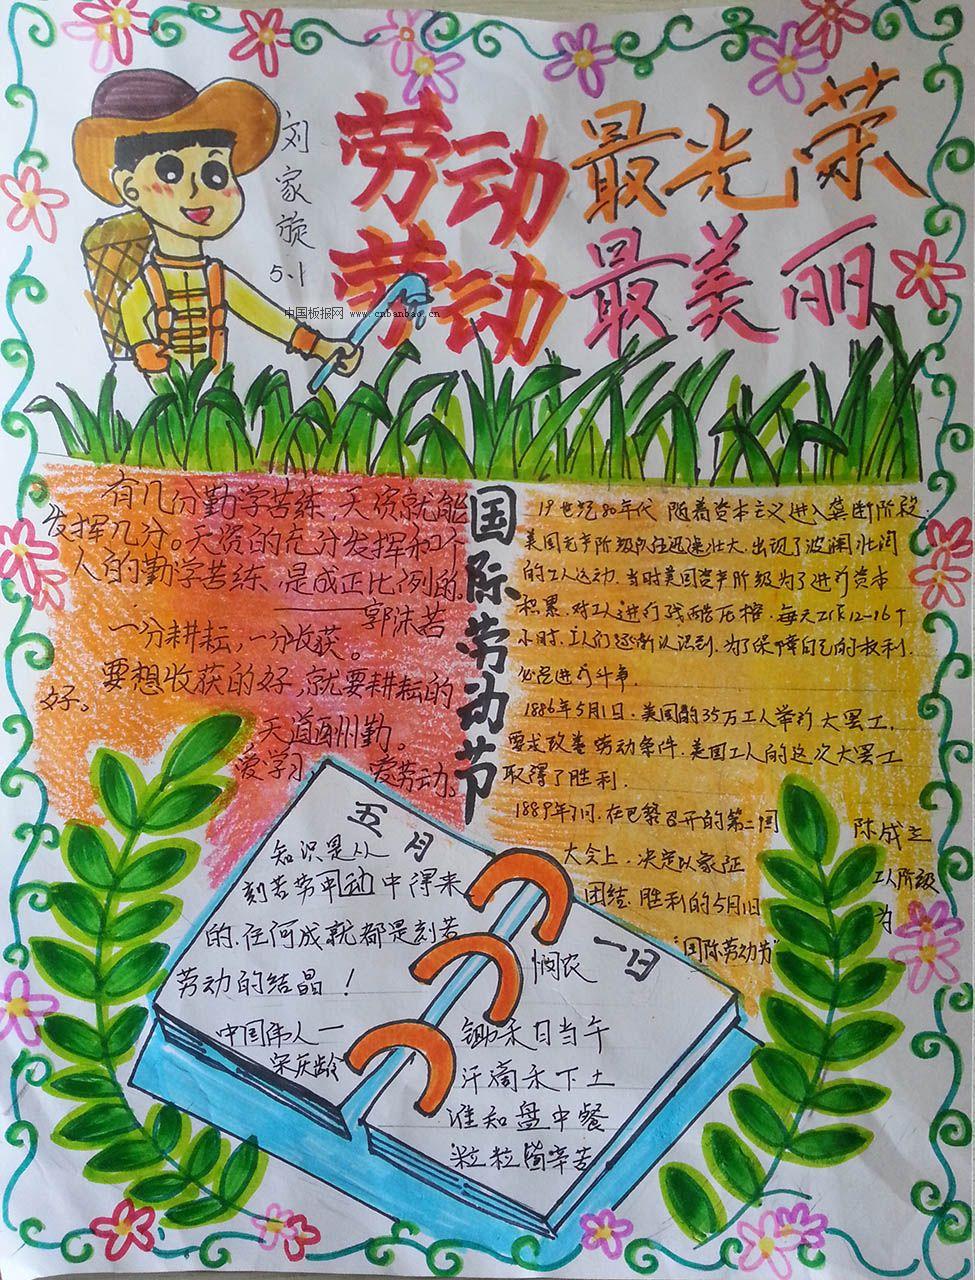 劳动最光荣
劳动最美丽
刘家旋
5.1
中国板报网 www.cnbanbao.cn
有几分勤学苦练,天资就能
发挥几分。天资的充分发挥和个
人的勤学苦练,是成正比例的。
——郭沫若
一分耕耘,一分收获。
要想收获的好,就要耕耘的
好。
天道酬勤。
爱学习, 爱劳动。
国际劳动节
19世纪80年代,随着资本主义进入垄断阶段,
美国无产阶级队伍迅速壮大,出现了波澜壮阔
的工人运动.当时美国资产阶级为了进行资本
积累,对工人进行残酷压榨,每天工作12-16个
小时.工人们逐渐认识到,为了保障自己的权利,
必定进行斗争.
1886年5月1日,美国的35万工人举行大罢工,
要求改善劳动条件,美国工人的这次大罢工
取得了胜利.
1889年7月,在巴黎召开的第二国
大会上,决定以象征
工人阶级
团结,胜利的5月1日
为
“国际劳动节”
五月
知识是从
刻苦劳动中得来
的,任何成就都是刻苦
劳动的结晶!
中国伟人—
宋庆龄
一日
悯农
锄禾日当午
汗滴禾下土
谁知盘中餐
粒粒皆辛苦